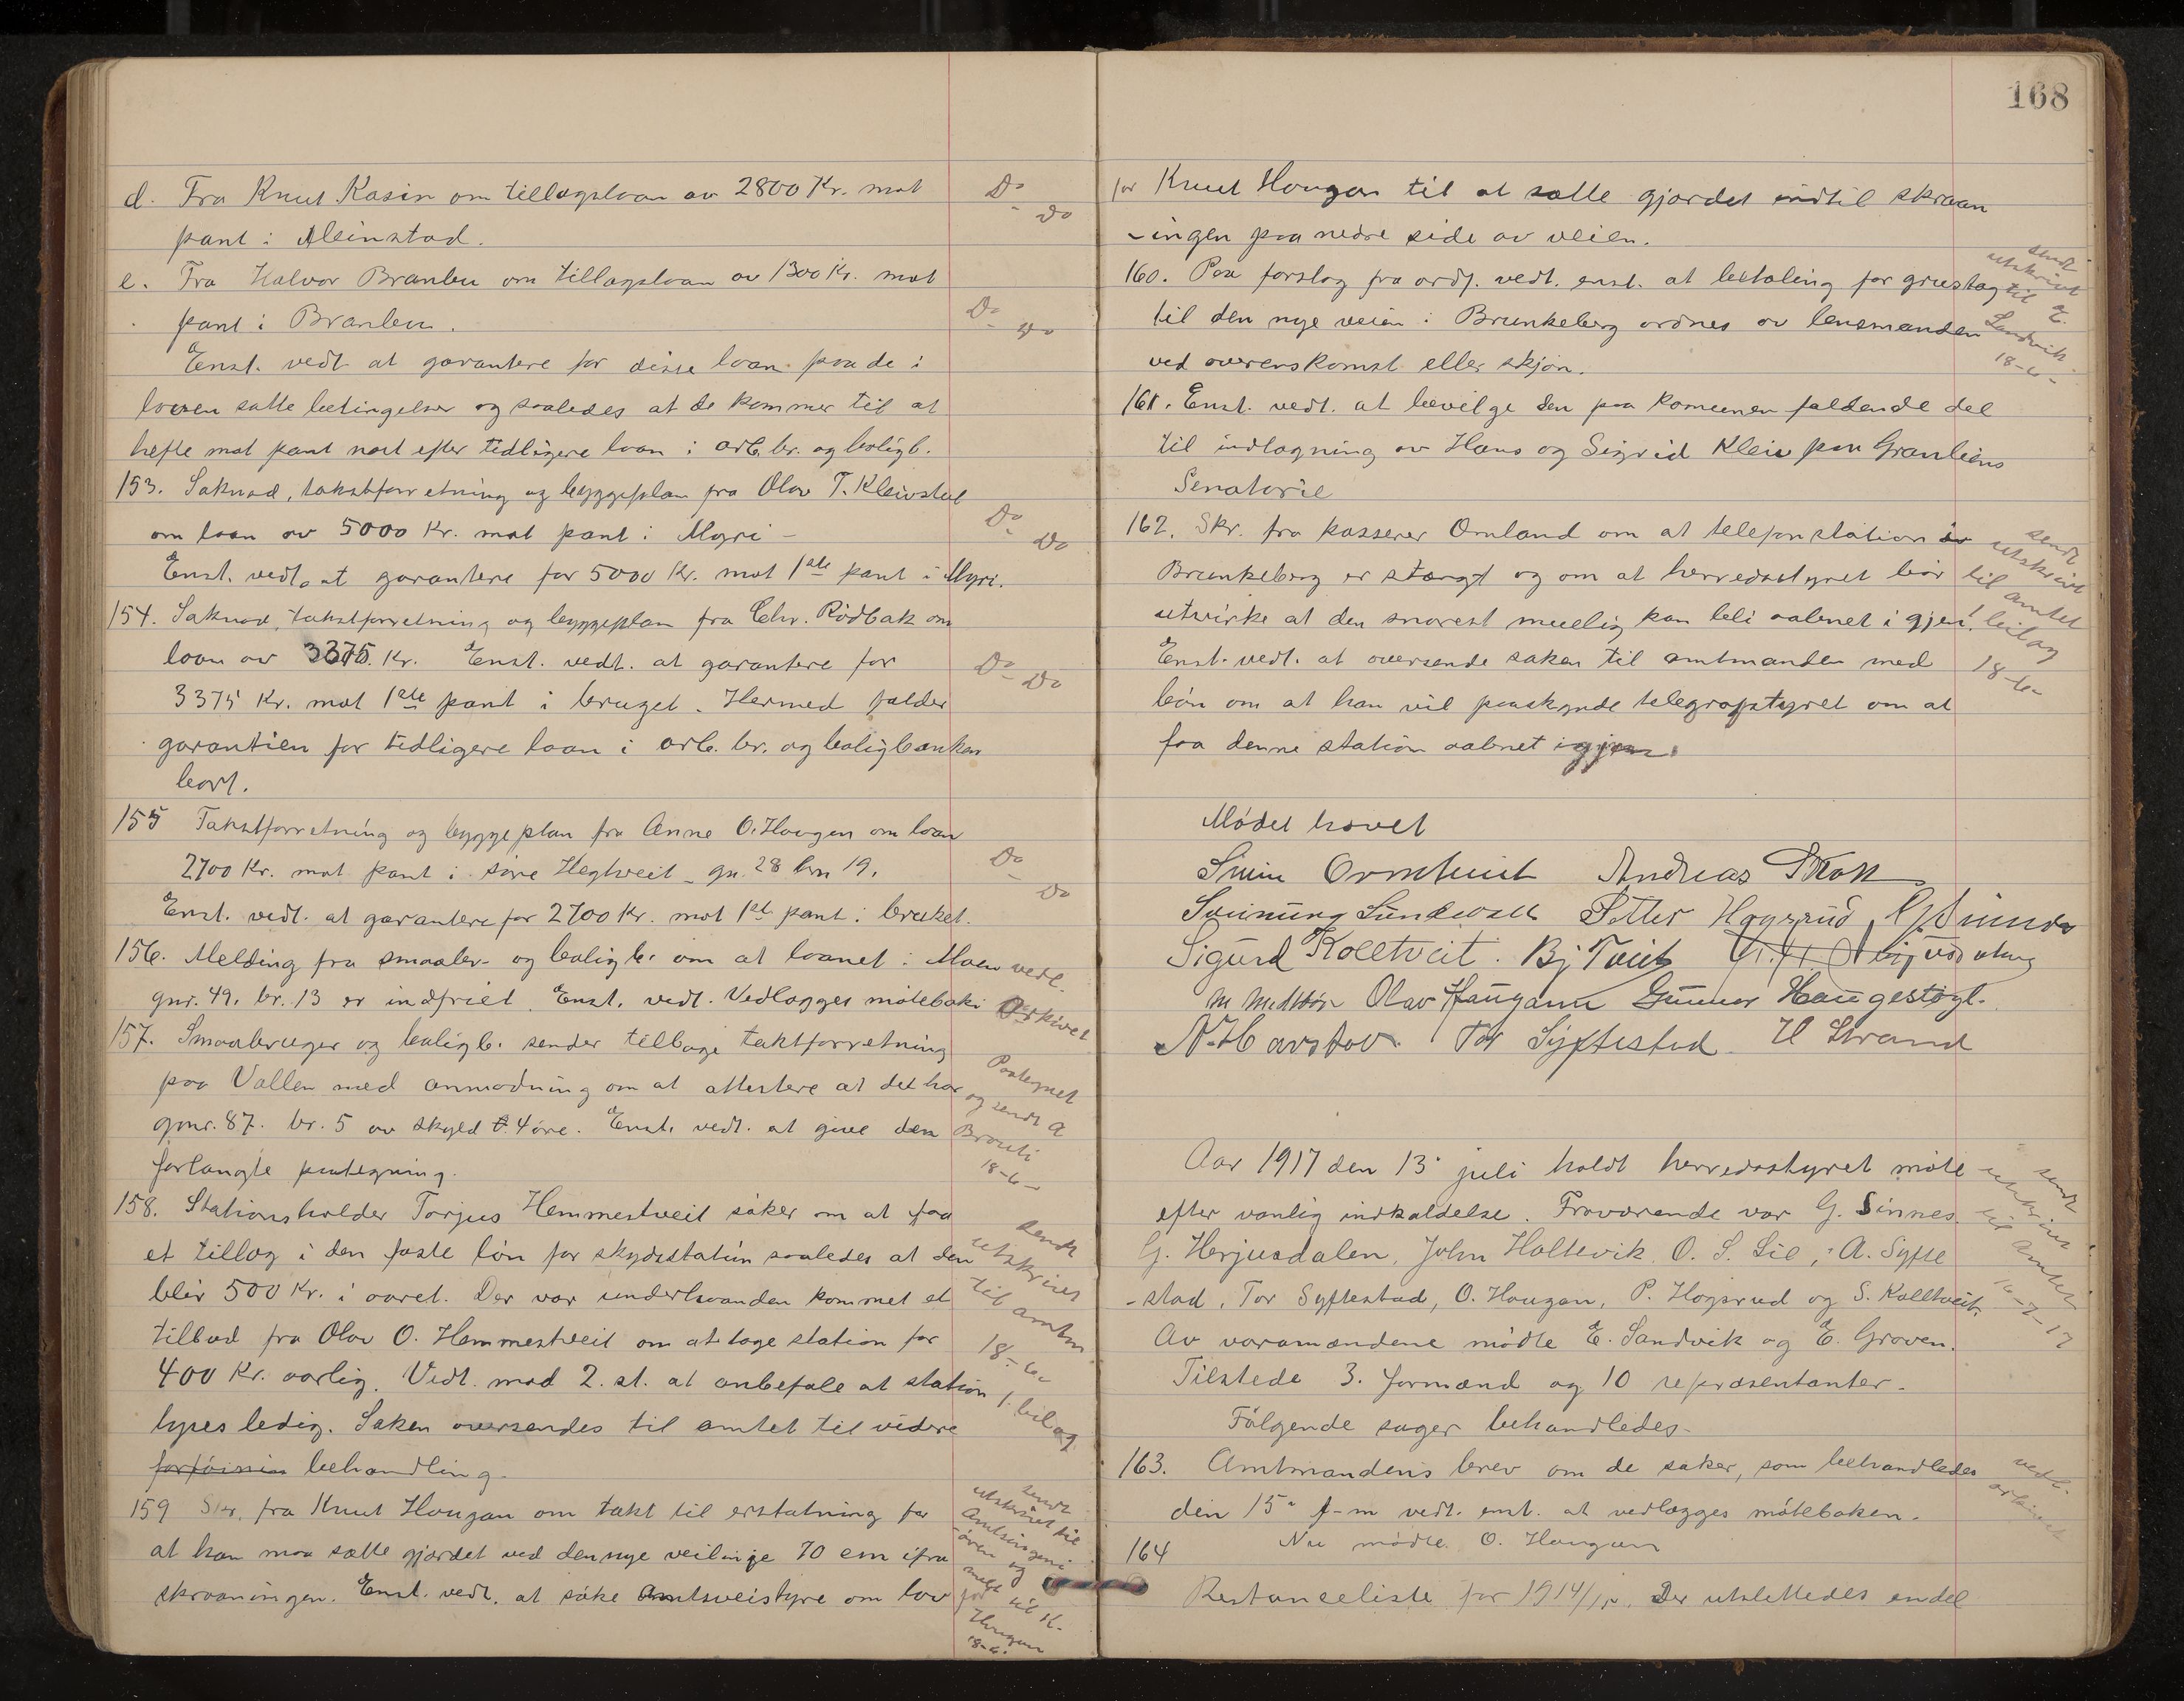 d. Fra Knut Kasin om tillægslaan av 2800 Kr. mot
Do - Do
pant i Meinstad.
e. Fra Halvor Brænleu om tillægslaan av 1300 Kr. mot
pant i Brænleu.
Do - Do
Enst. vedt. at garantere for disse laan paa de i
loven satte betingelser og saaledes at de kommer til at
hefte mot pant næst efter tidligere laan i arb. br. og boligb.
153. Søknad, takstforretning og byggeplan fra Olav T. Kleivstul
om laan av 5000 Kr. mot pant i Myri -
Do - Do
Enst. vedt. at garantere for 5000 Kr. mot 1ste pant i Myri.
154. Søknad, takstforretning og byggeplan fra Chr. Rødbæk om
laan av 3375. Kr. Enst. vedt. at garantere for
Do - Do
3375 Kr. mot 1ste pant i bruget. Hermed falder
garantien for tidligere laan i arb. br. og boligbanken
bort.
155 Takstforretning og byggeplan fra Anne O. Haugen om laan
2700 Kr. mot pant i søre Hegtveit - gn. 28 brn 19.
Do - Do
Enst. vedt. at garantere for 2700 Kr. mot 1st pant i bruket.
156. Melding fra smaabr- og boligb. om at laanet i Moen
gnr. 49. br. 13 er indfriet. Enst. vedt. Vedlægges møtebok.
vedl. Arkivet
157. Smaabruger og boligb. sender tilbage takstforretning
paa Vallen med anmodning om at attestere at det har
gnr. 87. br. 5 av skyld 4 øre. Enst. vedt. at give den
forlangte paategning.
Paategnet
og sendt A
Brauti
18-6-
158. Stationsholder Torjus Hemmestveit søker om at faa
et tillæg i den faste løn for skydsstation saaledes at den
blir 500 Kr. i aaret. Der var underhaanden kommet et
tilbud fra Olav O. Hemmestveit om at tage station for
400 Kr. aarlig. Vedt. mod 2. st. at anbefale at station
lyses ledig. Saken oversendes til amtet til videre
behandling.
sendt
utskrivt
til amtm
18-6-
1. bilag
159 Skr. fra Knut Haugan om takst til erstatning for
at han maa sætte gjærdet ved den nye veilinje 70 cm ifra
skraaningen. Enst. vedt. at søke Amtsveistyre om lov
sendt
utskrivt til
Amtsingeni
-øren og
melt til K.
Haugan
18-6.
168
for Knut Haugan til at sætte gjærdet indtil skraan
-ingen paa nedre side av veien.
160. Paa forslag fra ordf. vedt. enst. at betaling for grustag
til den nye veien i Brunkeberg ordnes av lensmanden
ved overenskomst eller skjøn.
sendt
utskrivt
til E.
Sandvik
18-6-
161. Enst. vedt. at bevilge den paa komunen faldende del
til indlægning av Hans og Sigrid Kleiv paa Granliens
Senatorie
162. Skr. fra kasserer Omland om at telefonstation
Brunkeberg er stængt og om at herredsstyret bør
utvirke at den snarest muelig kan bli aabnet i gjen.
Enst. vedt. at oversende saken til amtmanden med
bøn om at han vil paaskynde telegrafstyret om at
faa denne station aabnet igjen.
sendt
utskrivt
til amtet
1 bilag
18-6-
Mødet hævet
Svein Ormtveit Andreas Moen
Sveinung Sundvall Petter Høgsrud G Sinnes
Sigurd Kolltveit. Bj Tveit
Olav Haugann Gunnar Haugestøgl.
N. Havstov. Tor Syftestad. H Strand
Aar 1917 den 13. juli holdt herredsstyret møte
efter vanlig indkaldelse. Fraværende var G. Sinnes
G. Herjusdalen, John Haltevik, O. S. Lie, A. Syfte
-stad, Tor Syftestad, O. Haugan, P. Høgsrud og S. Kolltveit.
Av varamændene mødte E. Sandvik og E. Groven.
Tilstede 3. formænd og 10 repræsentanter.
Følgende sager behandledes-
sendt
utskrivt
til Amtet
16-7-17
163. Amtmandens brev om de saker, som behandledes
den 15. f-m vedt. enst. at vedlægges møteboken.
vedl.
arkivet
164 Nu mødte O. Haugan
Restanceliste for 1914/15. Der utslettedes endel